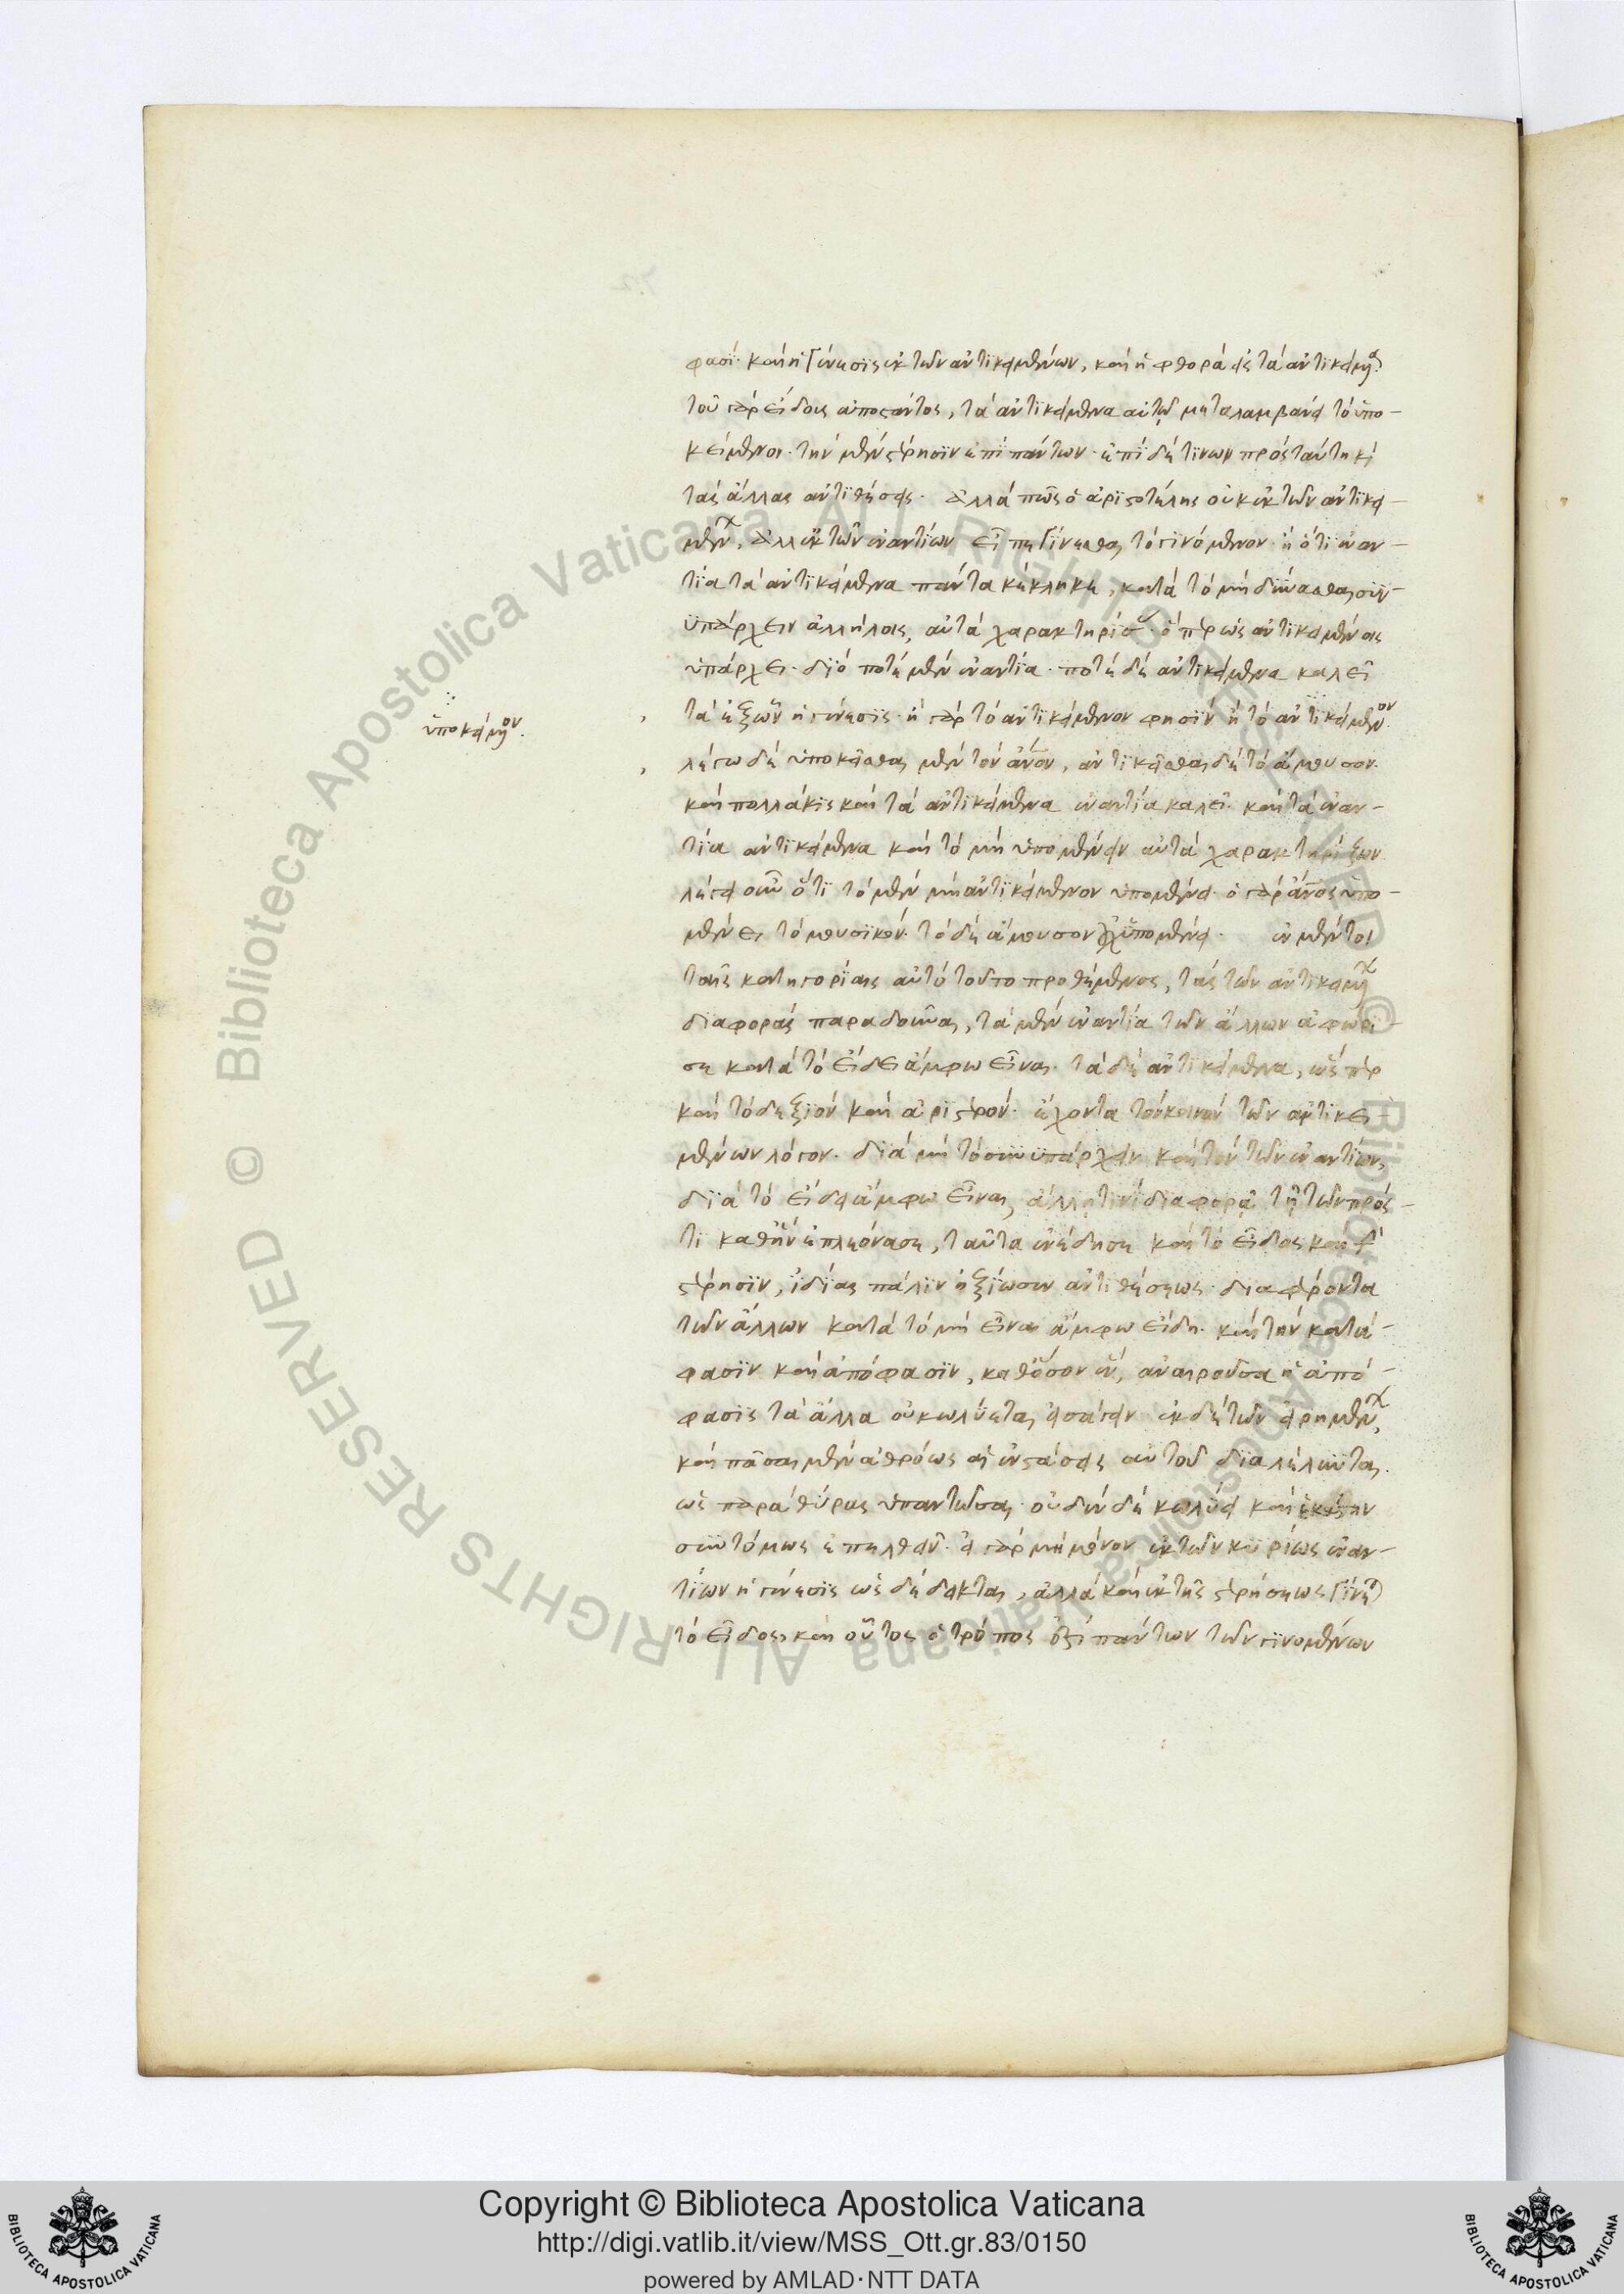 φασί· καὶ ἡ γένεσις ἐκ τῶν ἀντικειμένων, καὶ ἡ φθορὰ εἰς τὰ ἀντικείμενα·
τοῦ γὰρ εἴδους ἀποστάντος, τὰ ἀντικείμενα αὐτῷ μεταλαμβάνει τὸ ὑπο-
κείμενον· τὴν μὲν στέρησιν ἐπὶ πάντων· ἐπὶ δέ τινων πρὸς ταύτῃ καὶ
τὰς ἄλλας ἀντιθέσεις· ἀλλὰ πῶς ὁ ἀριστοτέλης οὐκ ἐκ τῶν ἀντικει-
μένων, ἀλλ' ἐκ τῶν ἐναντίων εἶπε γίνεσθαι τὸ γινόμενον· ἢ ὅτι ἐναν-
τία τὰ ἀντικείμενα πάντα κέκληκε, κατὰ τὸ μὴ δύνασθαι συν-
ϋπάρχειν ἀλλήλοις, αὐτὰ χαρακτηρίσας· ὅπερ ὡς ἀντικειμένοις
ὑπάρχει· διὸ ποτὲ μὲν ἐναντία· ποτὲ δὲ ἀντικείμενα καλεῖ
τὰ ἐξ ὧν ἡ γένεσις· ἢ γὰρ τὸ ἀντικείμενον φησὶν ἢ τὸ ἀντικείμενον·
ὑποκείμενον·
λέγω δὲ ὑποκεῖσθαι μὲν τὸν ἄνον, ἀντικεῖσθαι δὲ τὸ ἄμουσον·
καὶ πολλάκις καὶ τὰ ἀντικείμενα ἐναντία καλεῖ· καὶ τὰ ἐναν-
τία ἀντικείμενα καὶ τὸ μὴ ὑπομένειν αὐτὰ χαρακτηρίζων·
λέγει οὖν ὅτι τὸ μὲν μὴ ἀντικείμενον ὑπομένει· ὁ γὰρ ἄνος ὑπο-
μένει τὸ μουσικόν· τὸ δὲ ἄμουσον οὐχ ὑπομένει· ἐν μέντοι
ταῖς κατηγορίαις αὐτὸ τοῦτο προθέμενος, τὰς τῶν ἀντικειμένων
διαφορὰς παραδοῦναι, τὰ μὲν ἐναντία τῶν ἄλλων ἀφώρι-
σε κατὰ τὸ εἴδει ἄμφω εἶναι· τὰ δὲ ἀντικείμενα, ὥσπερ
καὶ τὸ δεξιὸν καὶ ἀριστερόν· ἔχοντα τὸν κοινὸν τῶν ἀντικει-
μένων λόγον· διὰ μὴ τὸ συνυπάρχειν καὶ τὸν τῶν ἐναντίων,
διὰ τὸ εἴδει ἄμφω εἶναι, ἀλλ' ἔτι τινὶ διαφορᾷ τῇ τῶν πρός-
τι καθ' ἣν ἐπλεόνασε, ταῦτα ἐνέδησε καὶ τὸ εἶδος καὶ τὴν
στέρησιν, ἰδίας πάλιν ἠξίωσεν ἀντιθέσεως· διαφέροντα
τῶν ἄλλων κατὰ τὸ μὴ εἶναι ἄμφω εἴδη· καὶ τὴν κατά-
φασιν καὶ ἀπόφασιν, καθ' ὅσον ἓν, ἀναιροῦσα ἡ ἀπό-
φασις τὰ ἄλλα οὐ κωλύεται εἰσάγειν ἐκ δὲ τῶν εἰρημένων,
καὶ πᾶσαι μὲν ἀθρόως αἱ ἐνστάσεις αὐτοῦ διαλέλυνται·
ὡς παρὰ θύρας ὑπαντῶσαι· οὐδὲν δὲ κωλύει καὶ ἑκάστην
συντόμως ἐπελθεῖν· εἰ γὰρ μὴ μόνον ἐκ τῶν κυρίως ἐναν-
τίων ἡ γένεσις ὡς δέδεικται, ἀλλὰ καὶ ἐκ τῆς στερήσεως γίνεται
τὸ εἶδος, καὶ οὗτος ὁ τρόπος ἐπὶ πάντων τῶν γινομένων
Copyright © Biblioteca Apostolica Vaticana
http://digi.vatlib.it/view/MSS_Ott.gr.83/0150
powered by AMLAD·NTT DATA